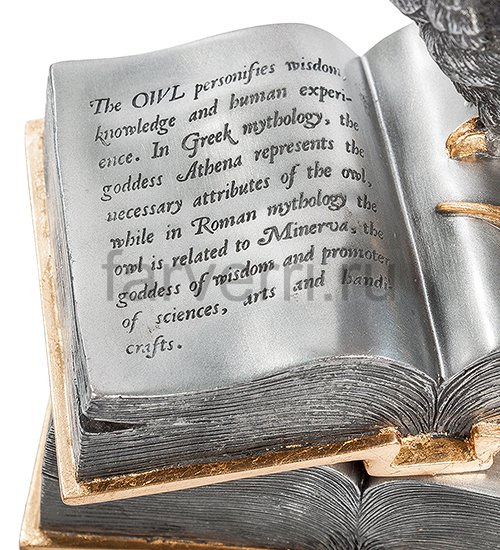 The OWL personifies wisdom,
knowledge and human experi-
ence. In Greek mythology, the
goddess Athena represents the
necessary attributes of the owl,
while in Roman mythology the
owl is related to Minerva, the
goddess of wisdom and promoter
of sciences, arts and handi-
crafts.
farverri.ru